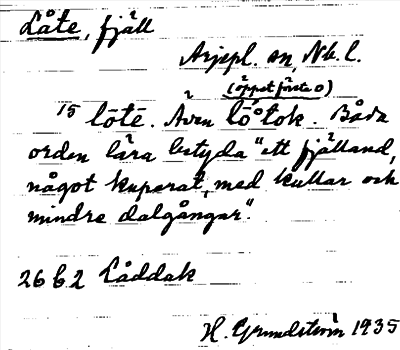 Låte, fjäll
Arjepl. sn, Nb. l.
(öppet första o)
15 lōtē. Även lóotok. Båda
orden lära betyda "ett fjälland,
något kuperat, med kullar och
mindre dalgångar".
26 b 2 Låddak
H. Grundström 1935